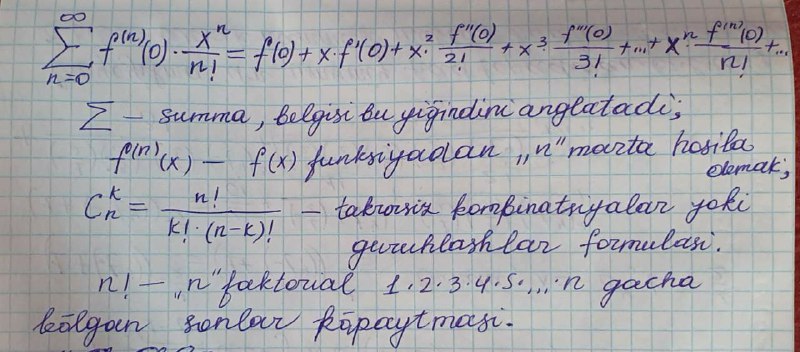 ∞
∑ f⁽ⁿ⁾(0) · xⁿ/n! = f(0) + x · f'(0) + x² · f''(0)/2! + x³ · f'''(0)/3! + ... + xⁿ · f⁽ⁿ⁾(0)/n! + ...
n=0
∑ – summa, belgisi bu yiğindini anglatadi;
f⁽ⁿ⁾(x) – f(x) funksiyadan „n" marta hosila
olmak;
Cₙᵏ = n!/(k! · (n-k)!) – takrorsiz kombinatsiyalar yoki
guruhlashlar formulasi.
n! – „n" faktorial 1·2·3·4·5·...·n gacha
bōlgan sonlar kōpaytmasi.